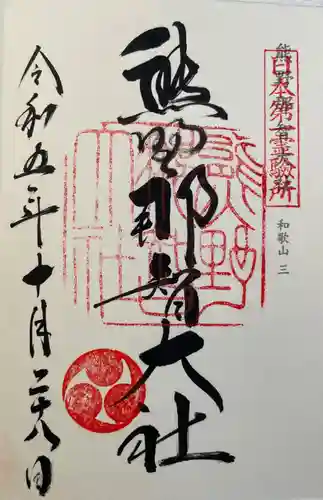 日本第一霊験所
熊野那智大社
和歌山 三
熊野那智大社
令和五年十月二十八日